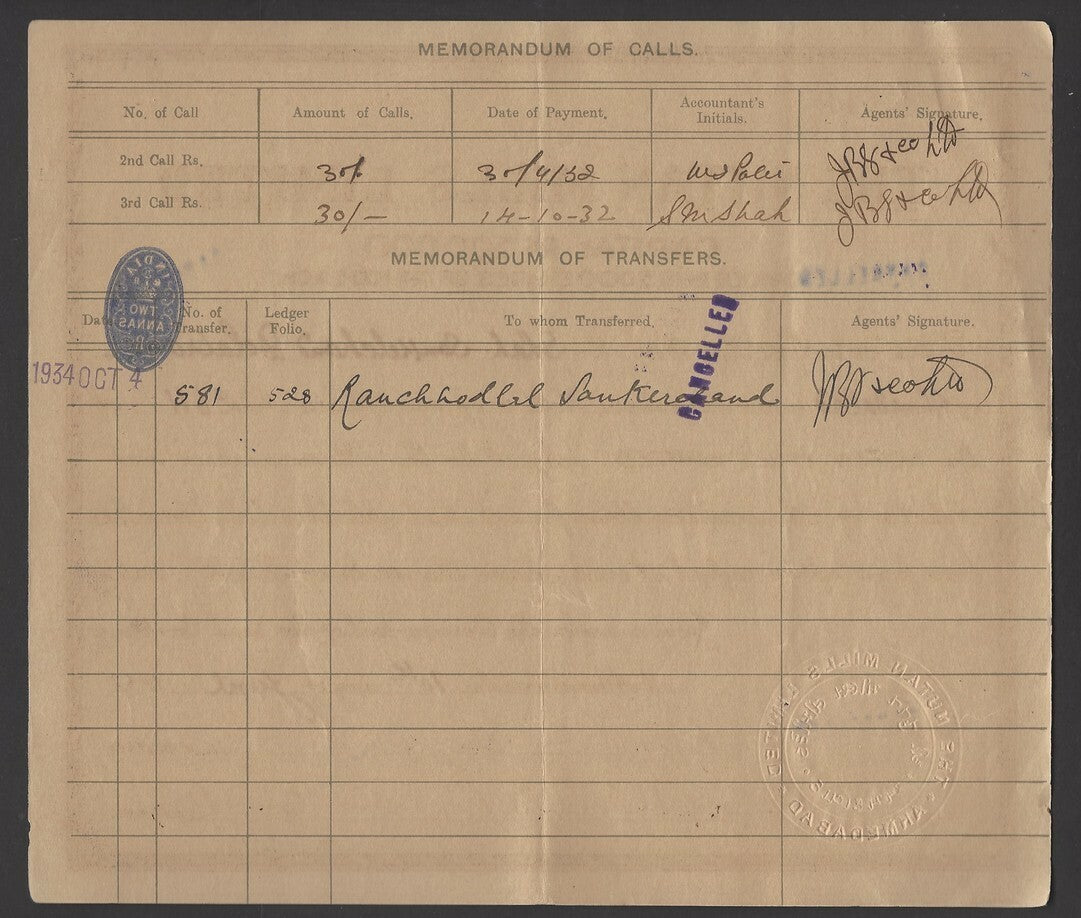 MEMORANDUM OF CALLS.
No. of Call Amount of Calls. Date of Payment. Accountant's Initials. Agents' Signature.
2nd Call Rs. 30/- 30/4/32
3rd Call Rs. 30/- 14-10-32 S M Shah
MEMORANDUM OF TRANSFERS.
INDIA
TWO ANNAS
Date No. of Transfer. Ledger Folio. To whom Transferred. Agents' Signature.
CANCELLED
1934 OCT 4 581 528 Ranchhodlal Sankerchand
THE NUTAN MILLS LIMITED
AHMEDABAD